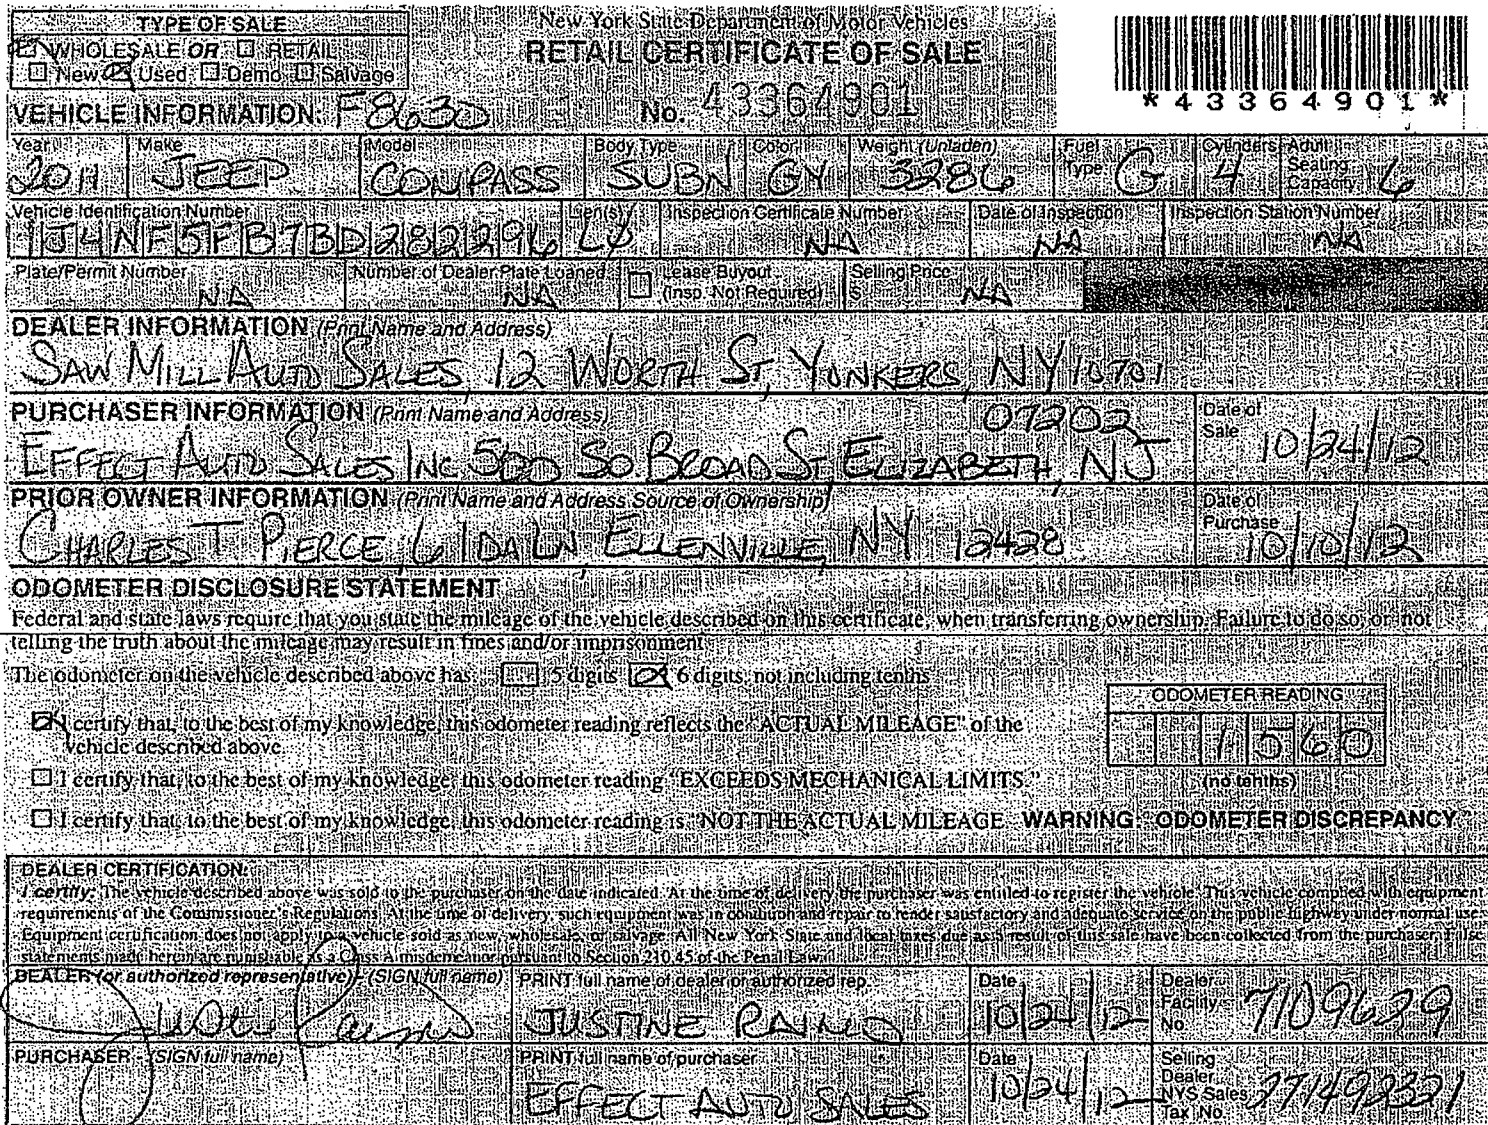 TYPE OF SALE
WHOLESALE OR RETAIL
New Used Demo Salvage
New York State Department of Motor Vehicles
RETAIL CERTIFICATE OF SALE
No. 43364901
*43364901*
VEHICLE INFORMATION: F8630
Year Make Model Body Type Color Weight (Unladen) Fuel Type Cylinders Adult Seating Capacity
2011 JEEP COMPASS SUBN GY 3286 G 4 6
Vehicle Identification Number Lien(s) Inspection Certificate Number Date of Inspection Inspection Station Number
1J4NF5FB7BD282296 NA NA NA
Plate/Permit Number Number of Dealer Plate Loaned Lease Buyout (Insp. Not Required) Selling Price
NA NA $ NA
DEALER INFORMATION (Print Name and Address)
SAW MILL AUTO SALES, 12 WORTH ST, YONKERS, NY 10701
PURCHASER INFORMATION (Print Name and Address) 07202 Date of Sale
EFFECT AUTO SALES INC 500 SO BROAD ST ELIZABETH, NJ 10/24/12
PRIOR OWNER INFORMATION (Print Name and Address Source of Ownership) Date of Purchase
CHARLES T PIERCE, 6 IDA LN, ELLENVILLE, NY 12428 10/10/12
ODOMETER DISCLOSURE STATEMENT
Federal and state laws require that you state the mileage of the vehicle described on this certificate, when transferring ownership. Failure to do so, or not
telling the truth about the mileage may result in fines and/or imprisonment.
The odometer on the vehicle described above has: 5 digits 6 digits, not including tenths
ODOMETER READING
1560
(no tenths)
I certify that, to the best of my knowledge, this odometer reading reflects the "ACTUAL MILEAGE" of the
vehicle described above.
I certify that, to the best of my knowledge, this odometer reading "EXCEEDS MECHANICAL LIMITS."
I certify that, to the best of my knowledge, this odometer reading is "NOT THE ACTUAL MILEAGE. WARNING: ODOMETER DISCREPANCY."
DEALER CERTIFICATION:
I certify: The vehicle described above was sold to the purchaser on the date indicated. At the time of delivery the purchaser was entitled to register the vehicle. This vehicle complied with equipment
requirements of the Commissioner's Regulations. At the time of delivery, such equipment was in condition and repair to render satisfactory and adequate service on the public highway under normal use.
Equipment certification does not apply to a vehicle sold as new, wholesale, or salvage. All New York State and local taxes due as a result of this sale have been collected from the purchaser. False
statements made herein are punishable as a Class A misdemeanor pursuant to Section 210.45 of the Penal Law.
DEALER (or authorized representative) - (SIGN full name) PRINT full name of dealer or authorized rep. Date Dealer Facility No.
JUSTINE 10/24/12 7109629
PURCHASER - (SIGN full name) PRINT full name of purchaser Date Selling Dealer NYS Sales Tax No.
EFFECT AUTO SALES 10/24/12 271492321